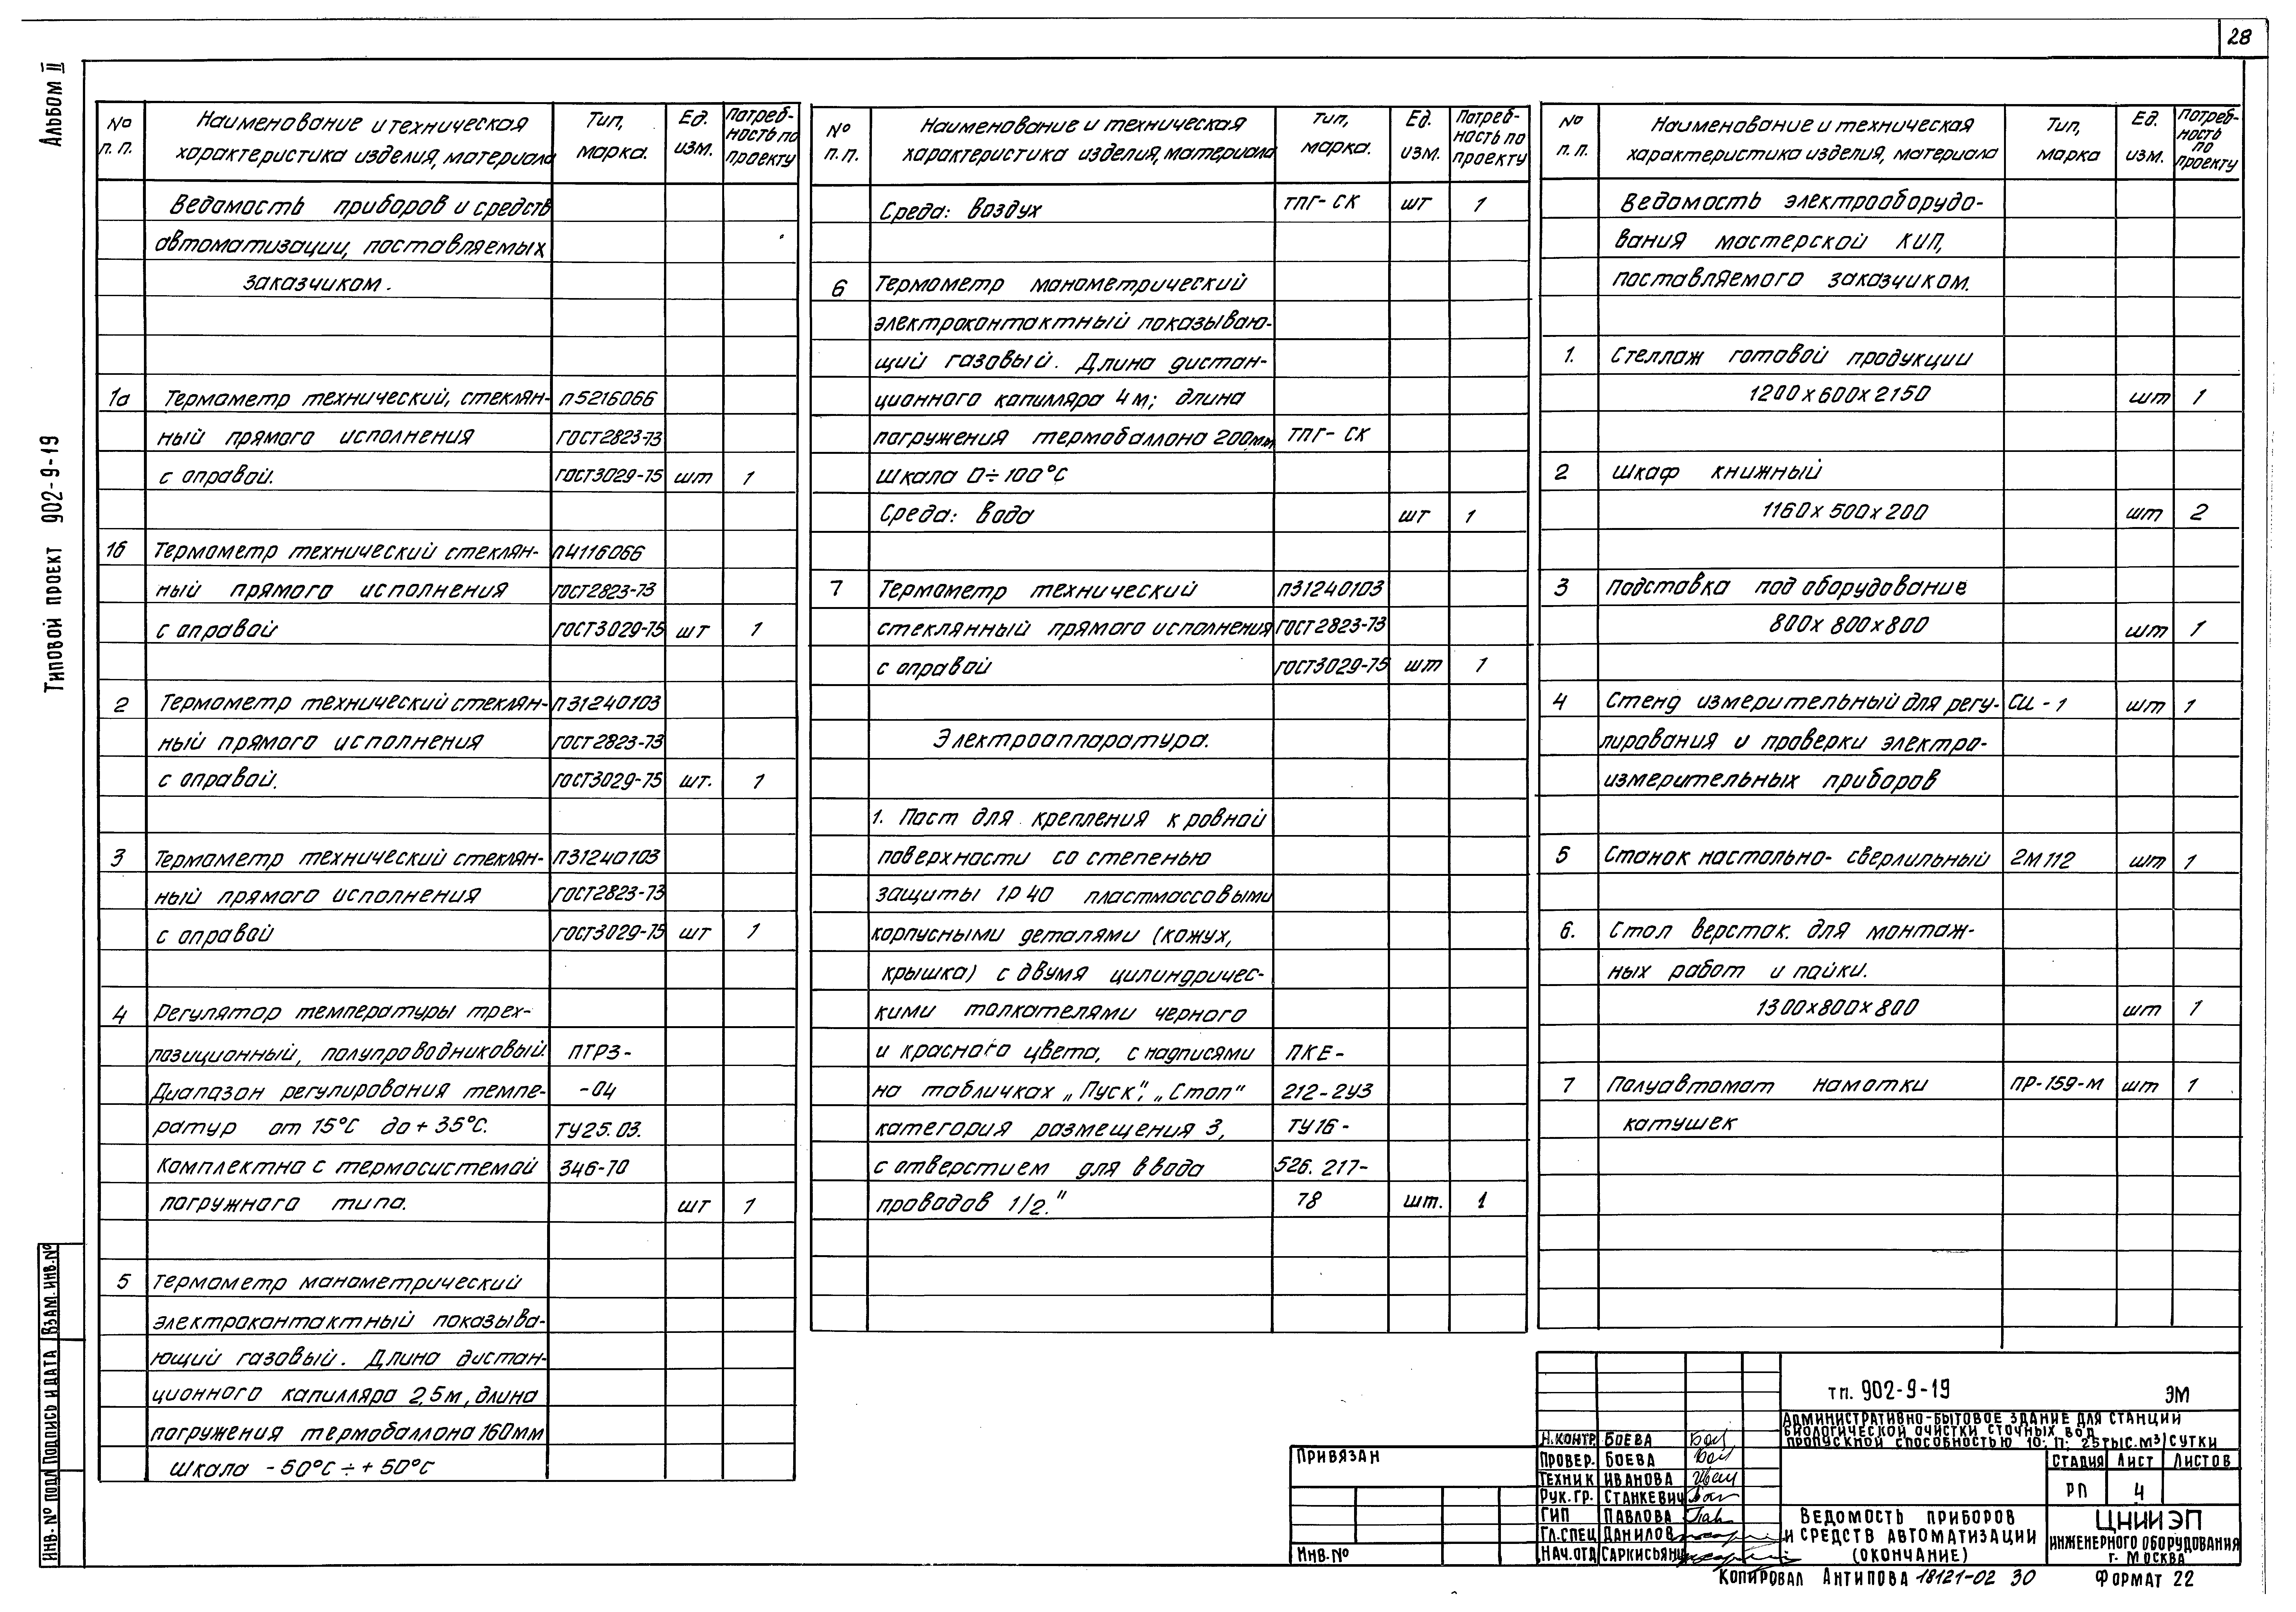 28
Альбом II
Типовой проект 902-9-19
№ п. п. Наименование и техническая характеристика изделия, материала Тип, марка. Ед. изм. Потреб-ность по проекту
Ведомость приборов и средств
автоматизации, поставляемых
заказчиком.
1а Термометр технический, стеклян- П5216066
ный прямого исполнения ГОСТ2823-73
с оправой. ГОСТ3029-75 шт 1
1б Термометр технический стеклян- П4116066
ный прямого исполнения ГОСТ2823-73
с оправой ГОСТ3029-75 шт 1
2 Термометр технический стеклян- П31240103
ный прямого исполнения ГОСТ2823-73
с оправой. ГОСТ3029-75 шт. 1
3 Термометр технический стеклян- П31240103
ный прямого исполнения ГОСТ2823-73
с оправой ГОСТ3029-75 шт 1
4 Регулятор температуры трех-
позиционный, полупроводниковый. ПТРЗ-
Диапазон регулирования темпе- -04
ратур от 15°С до + 35°С. ТУ25.03.
Комплектна с термосистемой 346-70
погружного типа. шт 1
5 Термометр манометрический
электроконтактный показыва-
ющий газовый. Длина дистан-
ционного капилляра 2,5м, длина
погружения термобаллона 160мм
шкала -50°С ÷ +50°С
№ п. п. Наименование и техническая характеристика изделия, материала Тип, марка. Ед. изм. Потреб-ность по проекту
Среда: воздух ТПГ-СК шт 1
6 Термометр манометрический
электроконтактный показываю-
щий газовый. Длина дистан-
ционного капилляра 4м; длина
погружения термобаллона 200мм ТПГ-СК
шкала 0÷100°С
Среда: вода шт 1
7 Термометр технический П31240103
стеклянный прямого исполнения ГОСТ2823-73
с оправой ГОСТ3029-75 шт 1
Электроаппаратура.
1. Пост для крепления к ровной
поверхности со степенью
защиты IP40 пластмассовыми
корпусными деталями (кожух,
крышка) с двумя цилиндричес-
кими толкателями черного
и красного цвета, с надписями ПКЕ-
на табличках „Пуск", „Стоп" 212-2У3
категория размещения 3, ТУ16-
с отверстием для ввода 526.217-
проводов 1/2." 78 шт. 1
№ п. п. Наименование и техническая характеристика изделия, материала Тип, марка Ед. изм. Потреб-ность по проекту
Ведомость электрооборудо-
вания мастерской КИП,
поставляемого заказчиком.
1. Стеллаж готовой продукции
1200х600х2150 шт 1
2 шкаф книжный
1160х500х200 шт 2
3 Подставка под оборудование
800х800х800 шт 1
4 Стенд измерительный для регу- СИ-1 шт 1
лирования и проверки электро-
измерительных приборов
5 Станок настольно-сверлильный 2М112 шт 1
6. Стол верстак. для монтаж-
ных работ и пайки.
1300х800х800 шт 1
7 Полуавтомат намотки ПР-159-М шт 1
катушек
Инв.№ подл Подпись и дата Взам.инв.№
Привязан
Инв.№
Н.контр. Боева
Провер. Боева
Техник Иванова
Рук.гр. Станкевич
ГИП Павлова
Гл.спец Данилов
Нач.отд Саркисьянц
тп. 902-9-19 ЭМ
Административно-бытовое здание для станции
биологической очистки сточных вод
пропускной способностью 10; 17; 25тыс.м³/сутки
Стадия Лист Листов
РП 4
Ведомость приборов
и средств автоматизации
(окончание)
ЦНИИЭП
инженерного оборудования
г. Москва
Копировал Антипова 18121-02 30 Формат 22